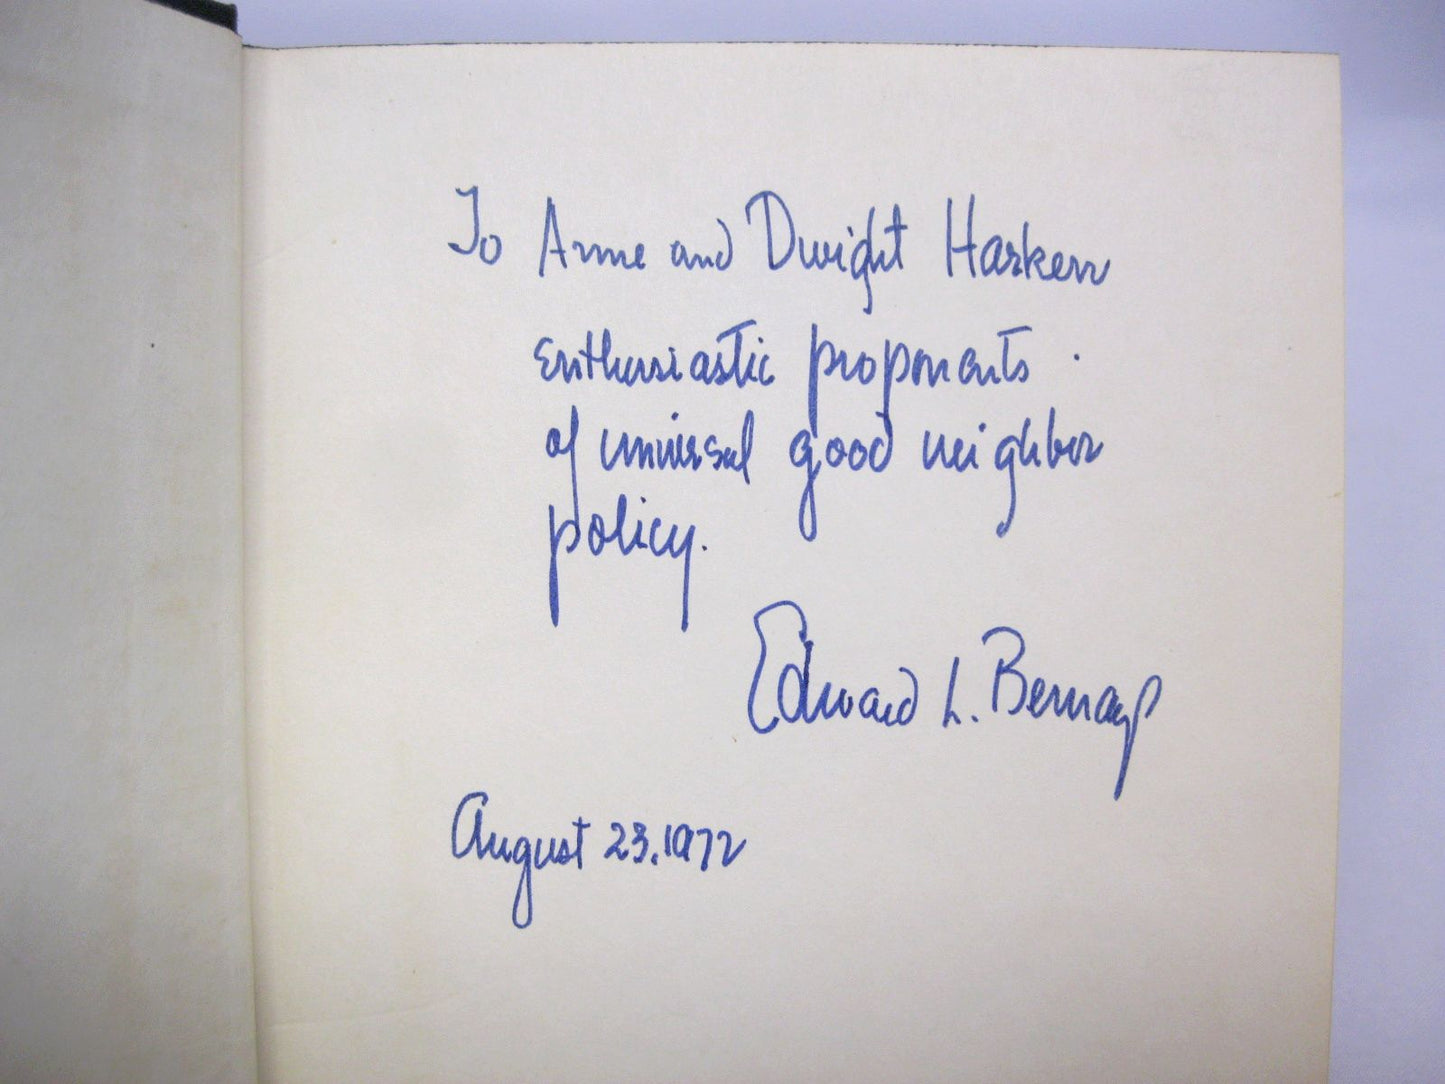 To Anne and Dwight Harken
enthusiastic proponents
of universal good neighbor
policy.
Edward L. Bernays
August 23, 1972